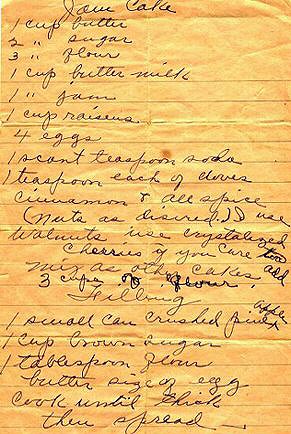 Jam Cake
1 cup butter
2 " sugar
3 " flour
1 cup butter milk
1 " Jam
1 cup raisens
4 eggs
1 scant teaspoon soda
1 teaspoon each of cloves
cinnamon & all spice
(nuts as disired.) I use
walnuts use crystalized
cherries if you care to add
mix as other cakes
3 cups of flour.
Filling
1 small can crushed pineapple
1 cup brown sugar
1 tablespoon flour
butter size of egg
cook until thick
then spread